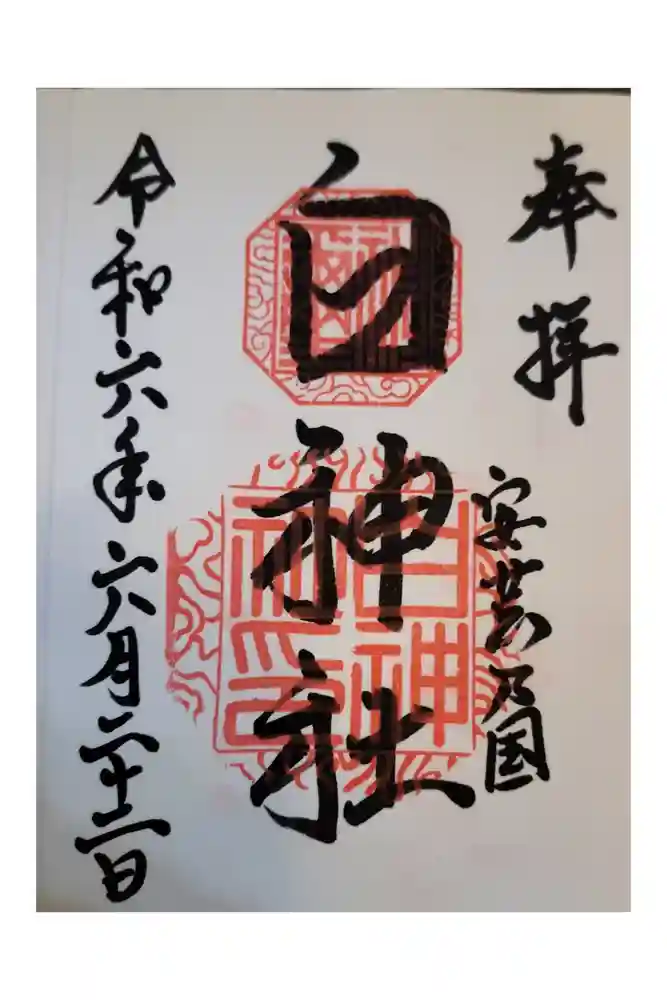 奉拝
安芸乃国
白神社
令和六年六月二十二日
白神社印